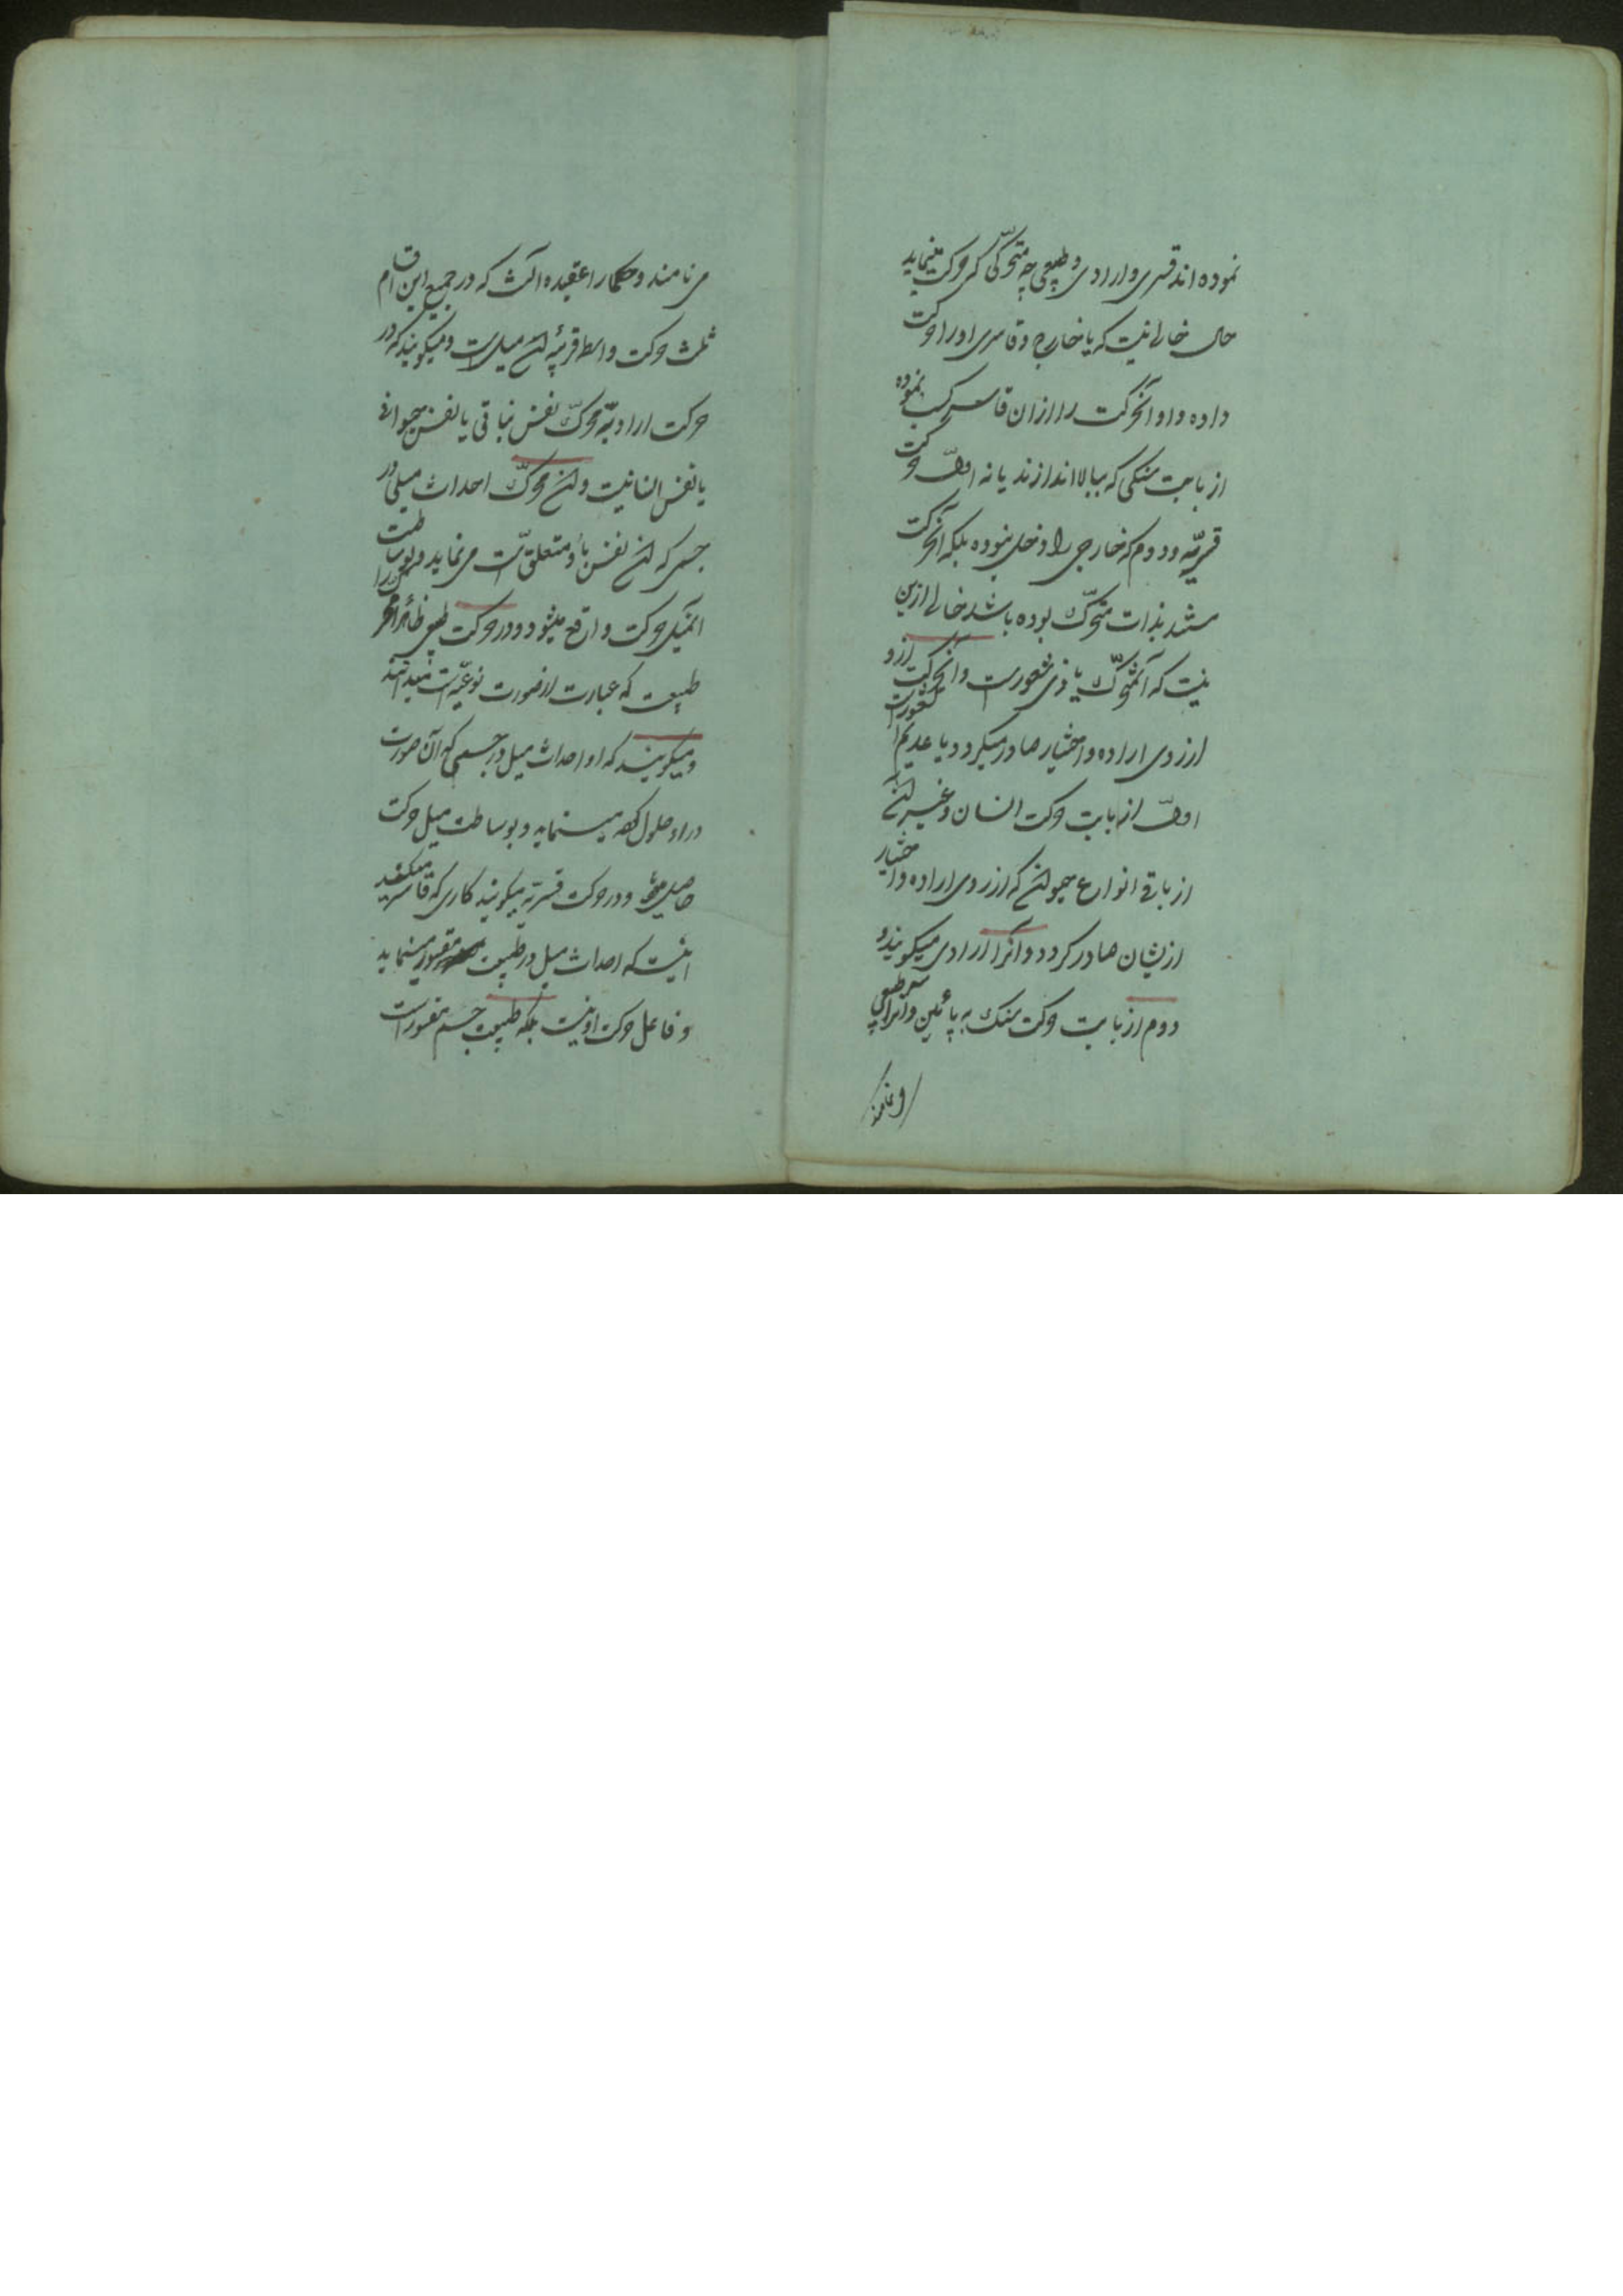 نموده اند قسری و ارادی و طبیعی چه متحرکی که حرکت مینماید
حال خالی نیست که یا خارج و قاسری او را حرکت
داده و او آنحرکت را از ان قاسر کسب نموده
از بابت سنگی که ببالا اندازند یا نه اول حرکت
قسریه و دوم که خارجی را دخلی نبوده بلکه آنحرکت
مستند بذات متحرک بوده باشد خالی ازین
نیست که آنمتحرک یا ذی شعورست و آنحرکت ازو
از روی اراده و اختیار صادر میگردد یا عدیم الشعورست
اول از بابت حرکت انسان و غیر آن
از باقی انواع حیوان که از روی اراده و اختیار
ازیشان صادر گردد و آنرا ارادی میگویند و
دوم از بابت حرکت سنگ به پائین و آنرا طبیعی
می نامند و حکما را عقیده آنست که در جمیع این اقسام
ثلث حرکت واسطه قریبه آن میل است و میگویند که در
حرکت ارادیه محرک نفس نباتی یا نفس حیوانی
یا نفس انسانیست و آن محرک احداث میلی در
جسمی که آن نفس باو متعلق است می نماید و بوساطت
آنمیل حرکت واقع میشود و در حرکت طبیعی
طبیعت که عبارت از صورت نوعیه است میدانند
و میگویند که او احداث میل در جسمی که آن صورت
در او حلول کرده مینماید و بوساطت میل حرکت
حاصل میشود و در حرکت قسریه میگویند کاری که قاسر میکند
اینست که احداث میل در طبیعت مقسور مینماید
و فاعل حرکت او نیست بلکه طبیعت جسم مقسور است